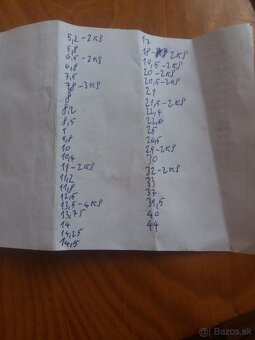 5,2 - 2KS
5,8
6,5 - 2KS
6,8
7,5
8
8,2
8,5
9,8
10
10,4
11 - 2KS
11,2
11,8
12,5
13,5 - 4KS
13,75
14
14,25
14,5
17
18 - 2KS
19,5 - 2KS
20 - 2KS
20,5 - 2KS
21
21,5 - 2KS
22,4
22,6
25
26,5
29 - 2KS
30
32 - 2KS
33
37
40
44
bazos.sk